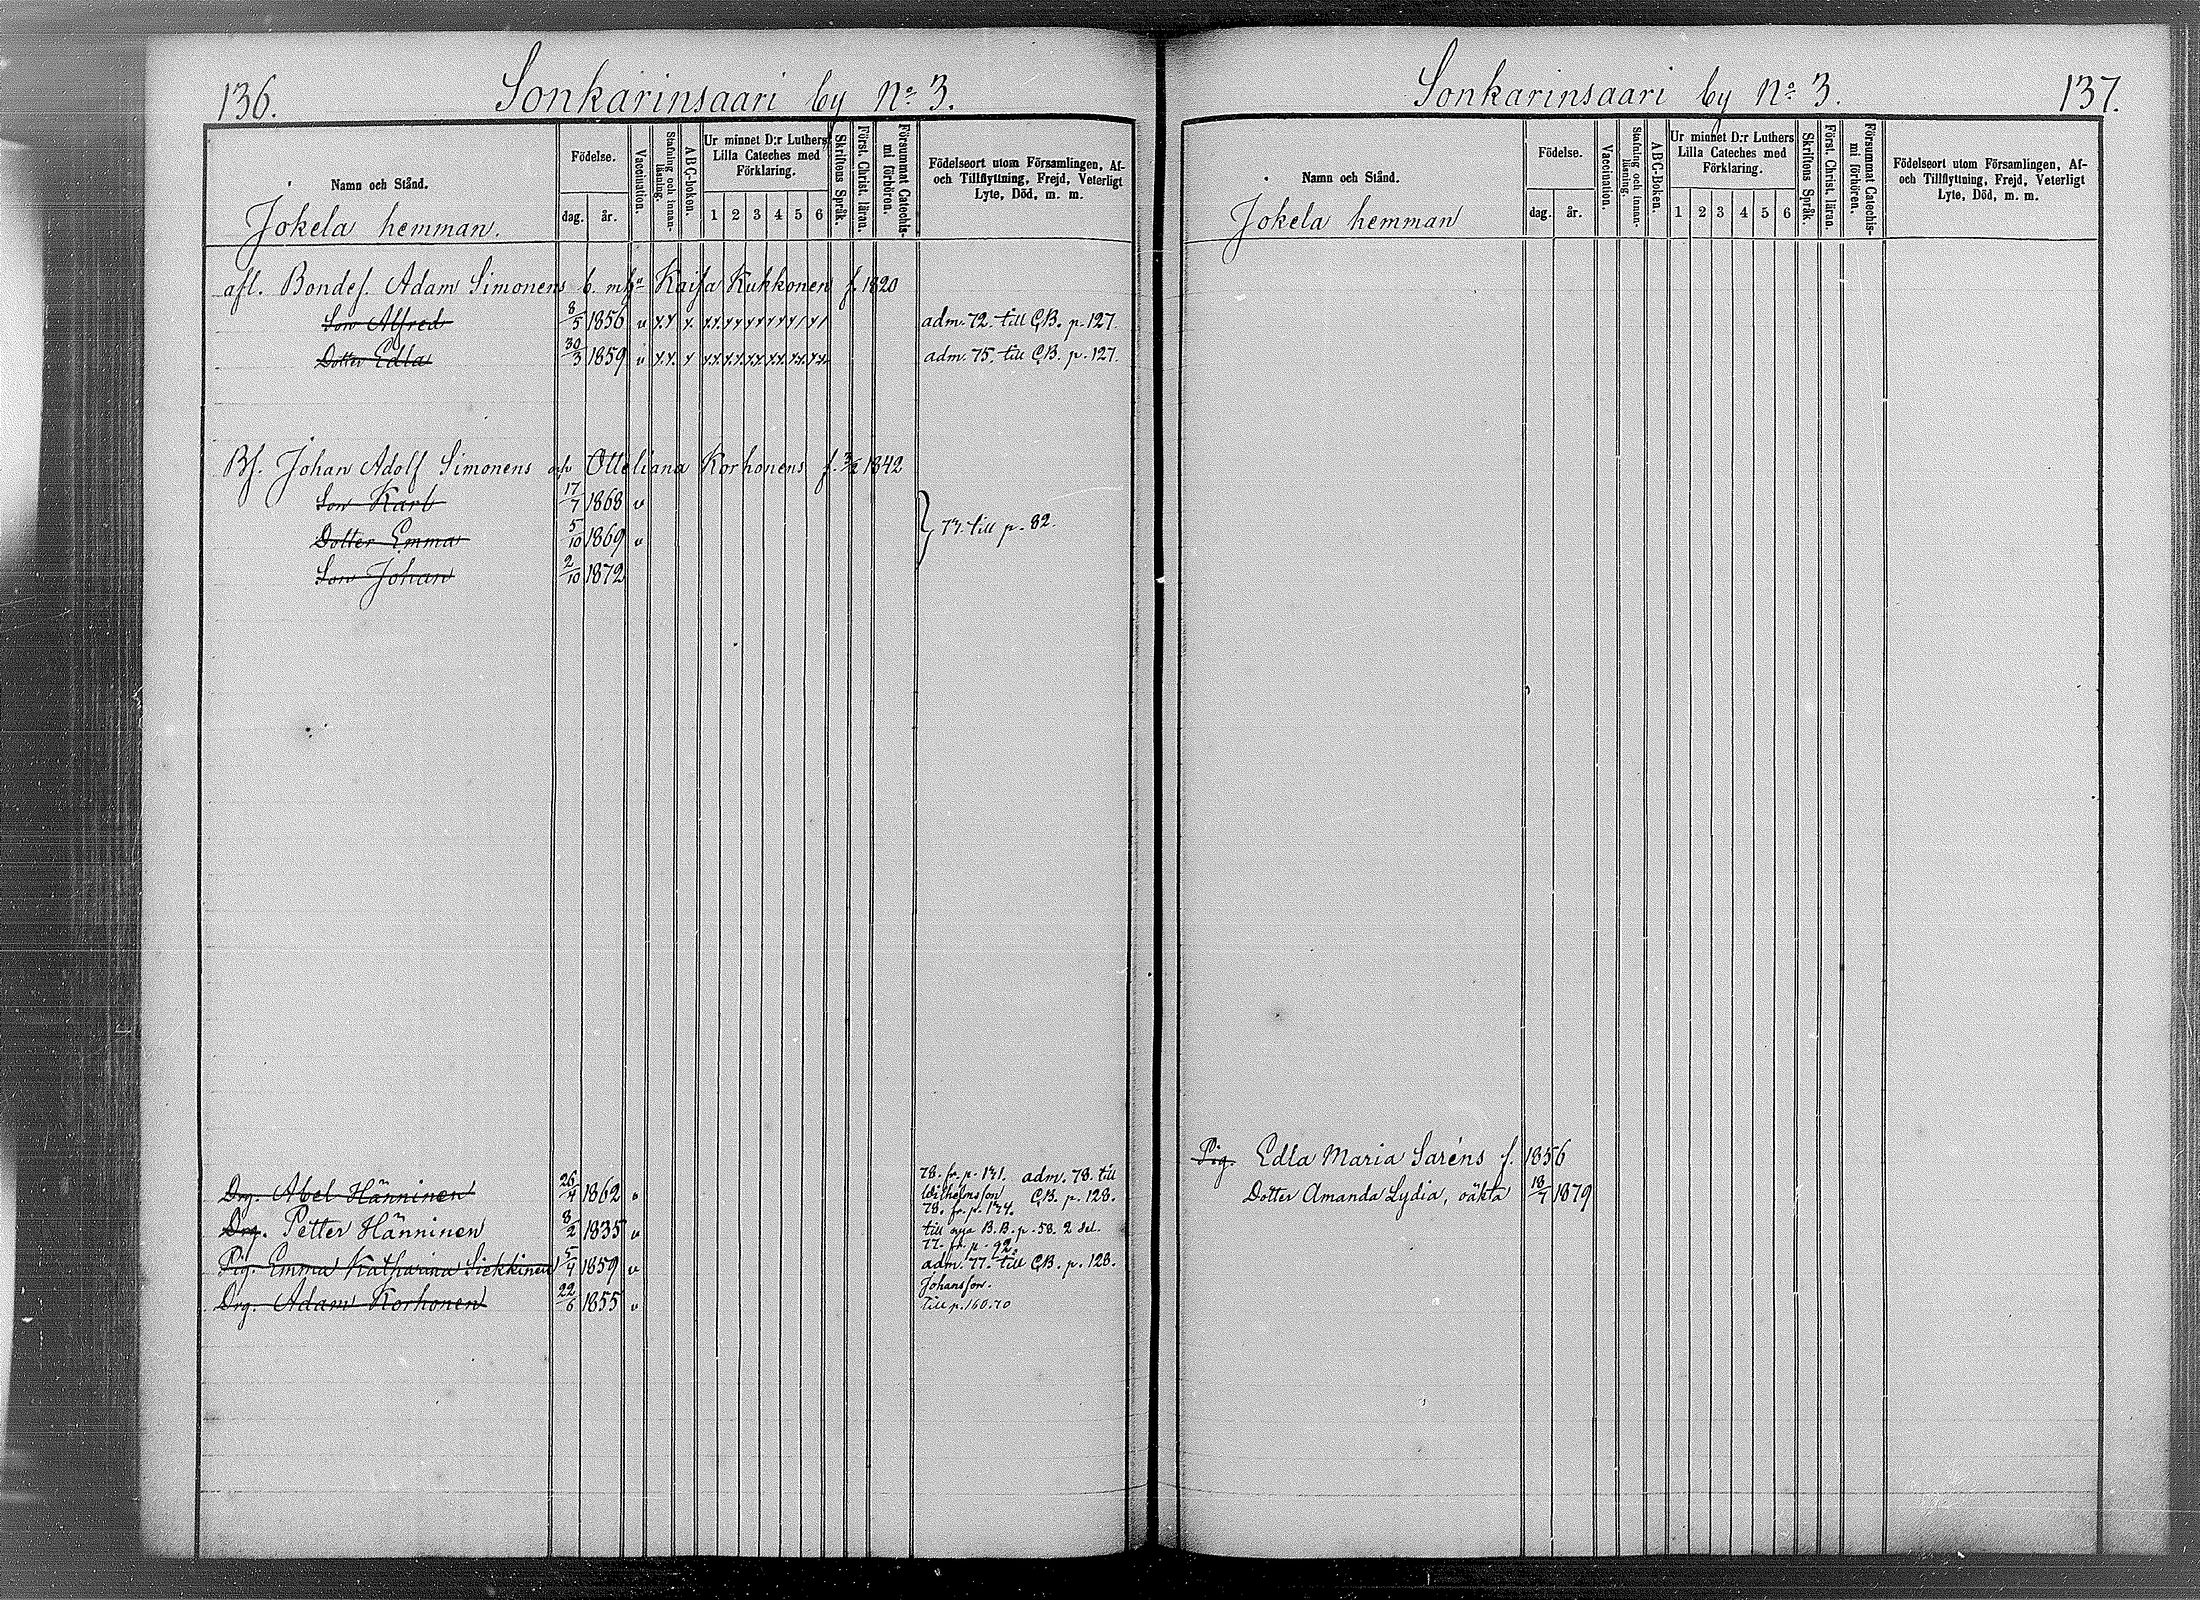 136.
Sonkarinsaari by No 3.
Namn och Stånd.
Födelse.
dag.
år.
Vaccination.
Stafning och innanläsning.
ABC-boken.
Ur minnet D:r Luthers Lilla Cateches med Förklaring.
1 2 3 4 5 6
Skriftens Språk.
Först. Christ. läran.
Försummat Catechismi förhören.
Födelseort utom Församlingen, Af- och Tillflyttning, Frejd, Veterligt Lyte, Död, m. m.
Jokela hemman.
afl. Bondes. Adam Simonens b. m. hu Kaisa Kukkonen f. 1820
Son Alfred 8/5 1856 v adm. 72. till C.B. p. 127.
Dotter Edla 30/3 1859 v adm. 75. till C.B. p. 127.
Bs. Johan Adolf Simonens och Otteliana Korhonens f. 3/2 1842
Son Karl 17/7 1868 v
Dotter Emma 5/10 1869 v till p. 82.
Son Johan 2/10 1872
78. fr. p. 131. adm. 78. till
Drg. Abel Hänninen 26/4 1862 v Wilhelmsson C.B. p. 128.
78. fr. p. 134.
Drg. Petter Hänninen 8/2 1835 v till nya B.B. p. 58. 2 del.
77. fr. p. 92.
Pig. Emma Katharina Siekkinen 5/4 1859 v adm. 77. till C.B. p. 128.
Johansson.
Drg. Adam Korhonen 22/6 1855 v till p. 160. 70
Sonkarinsaari by No 3.
137.
Namn och Stånd.
Födelse.
dag.
år.
Vaccination.
Stafning och innanläsning.
ABC-Boken.
Ur minnet D:r Luthers Lilla Cateches med Förklaring.
1 2 3 4 5 6
Skriftens Språk.
Först. Christ. läran.
Försummat Catechismi förhören.
Födelseort utom Församlingen, Af- och Tillflyttning, Frejd, Veterligt Lyte, Död, m. m.
Jokela hemman
Pig. Edla Maria Saréns f. 1856
Dotter Amanda Lydia, oäkta 18/7 1879